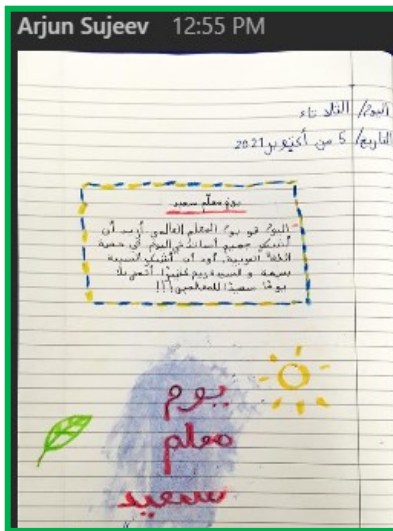 Arjun Sujeev 12:55 PM
اليوم/ الثلاثاء
التاريخ/ 5 من أكتوبر 2021
يوم معلم سعيد
اليوم هو يوم المعلم العالمي. أريد أن
أشكر جميع أساتذتي اليوم. في حصة
اللغة العربية، أود أن أشكر السيدة
بسمة و السيد كريم كثيرًا. أتمنى لا
يومًا سعيدًا للمعلمين!!!
يوم
معلم
سعيد